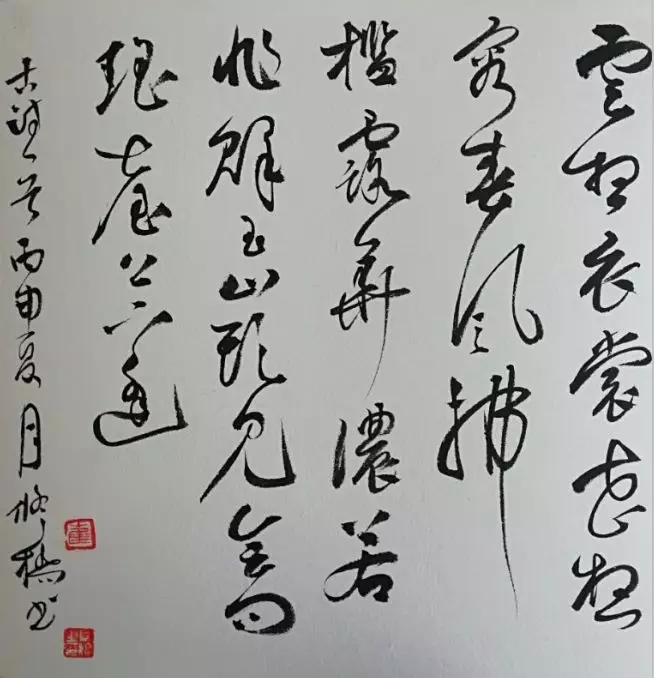 雲想衣裳花想
容春風拂
檻露華濃若
非群玉山頭見會向
瑤臺月下逢
古詩一首丙申夏月書